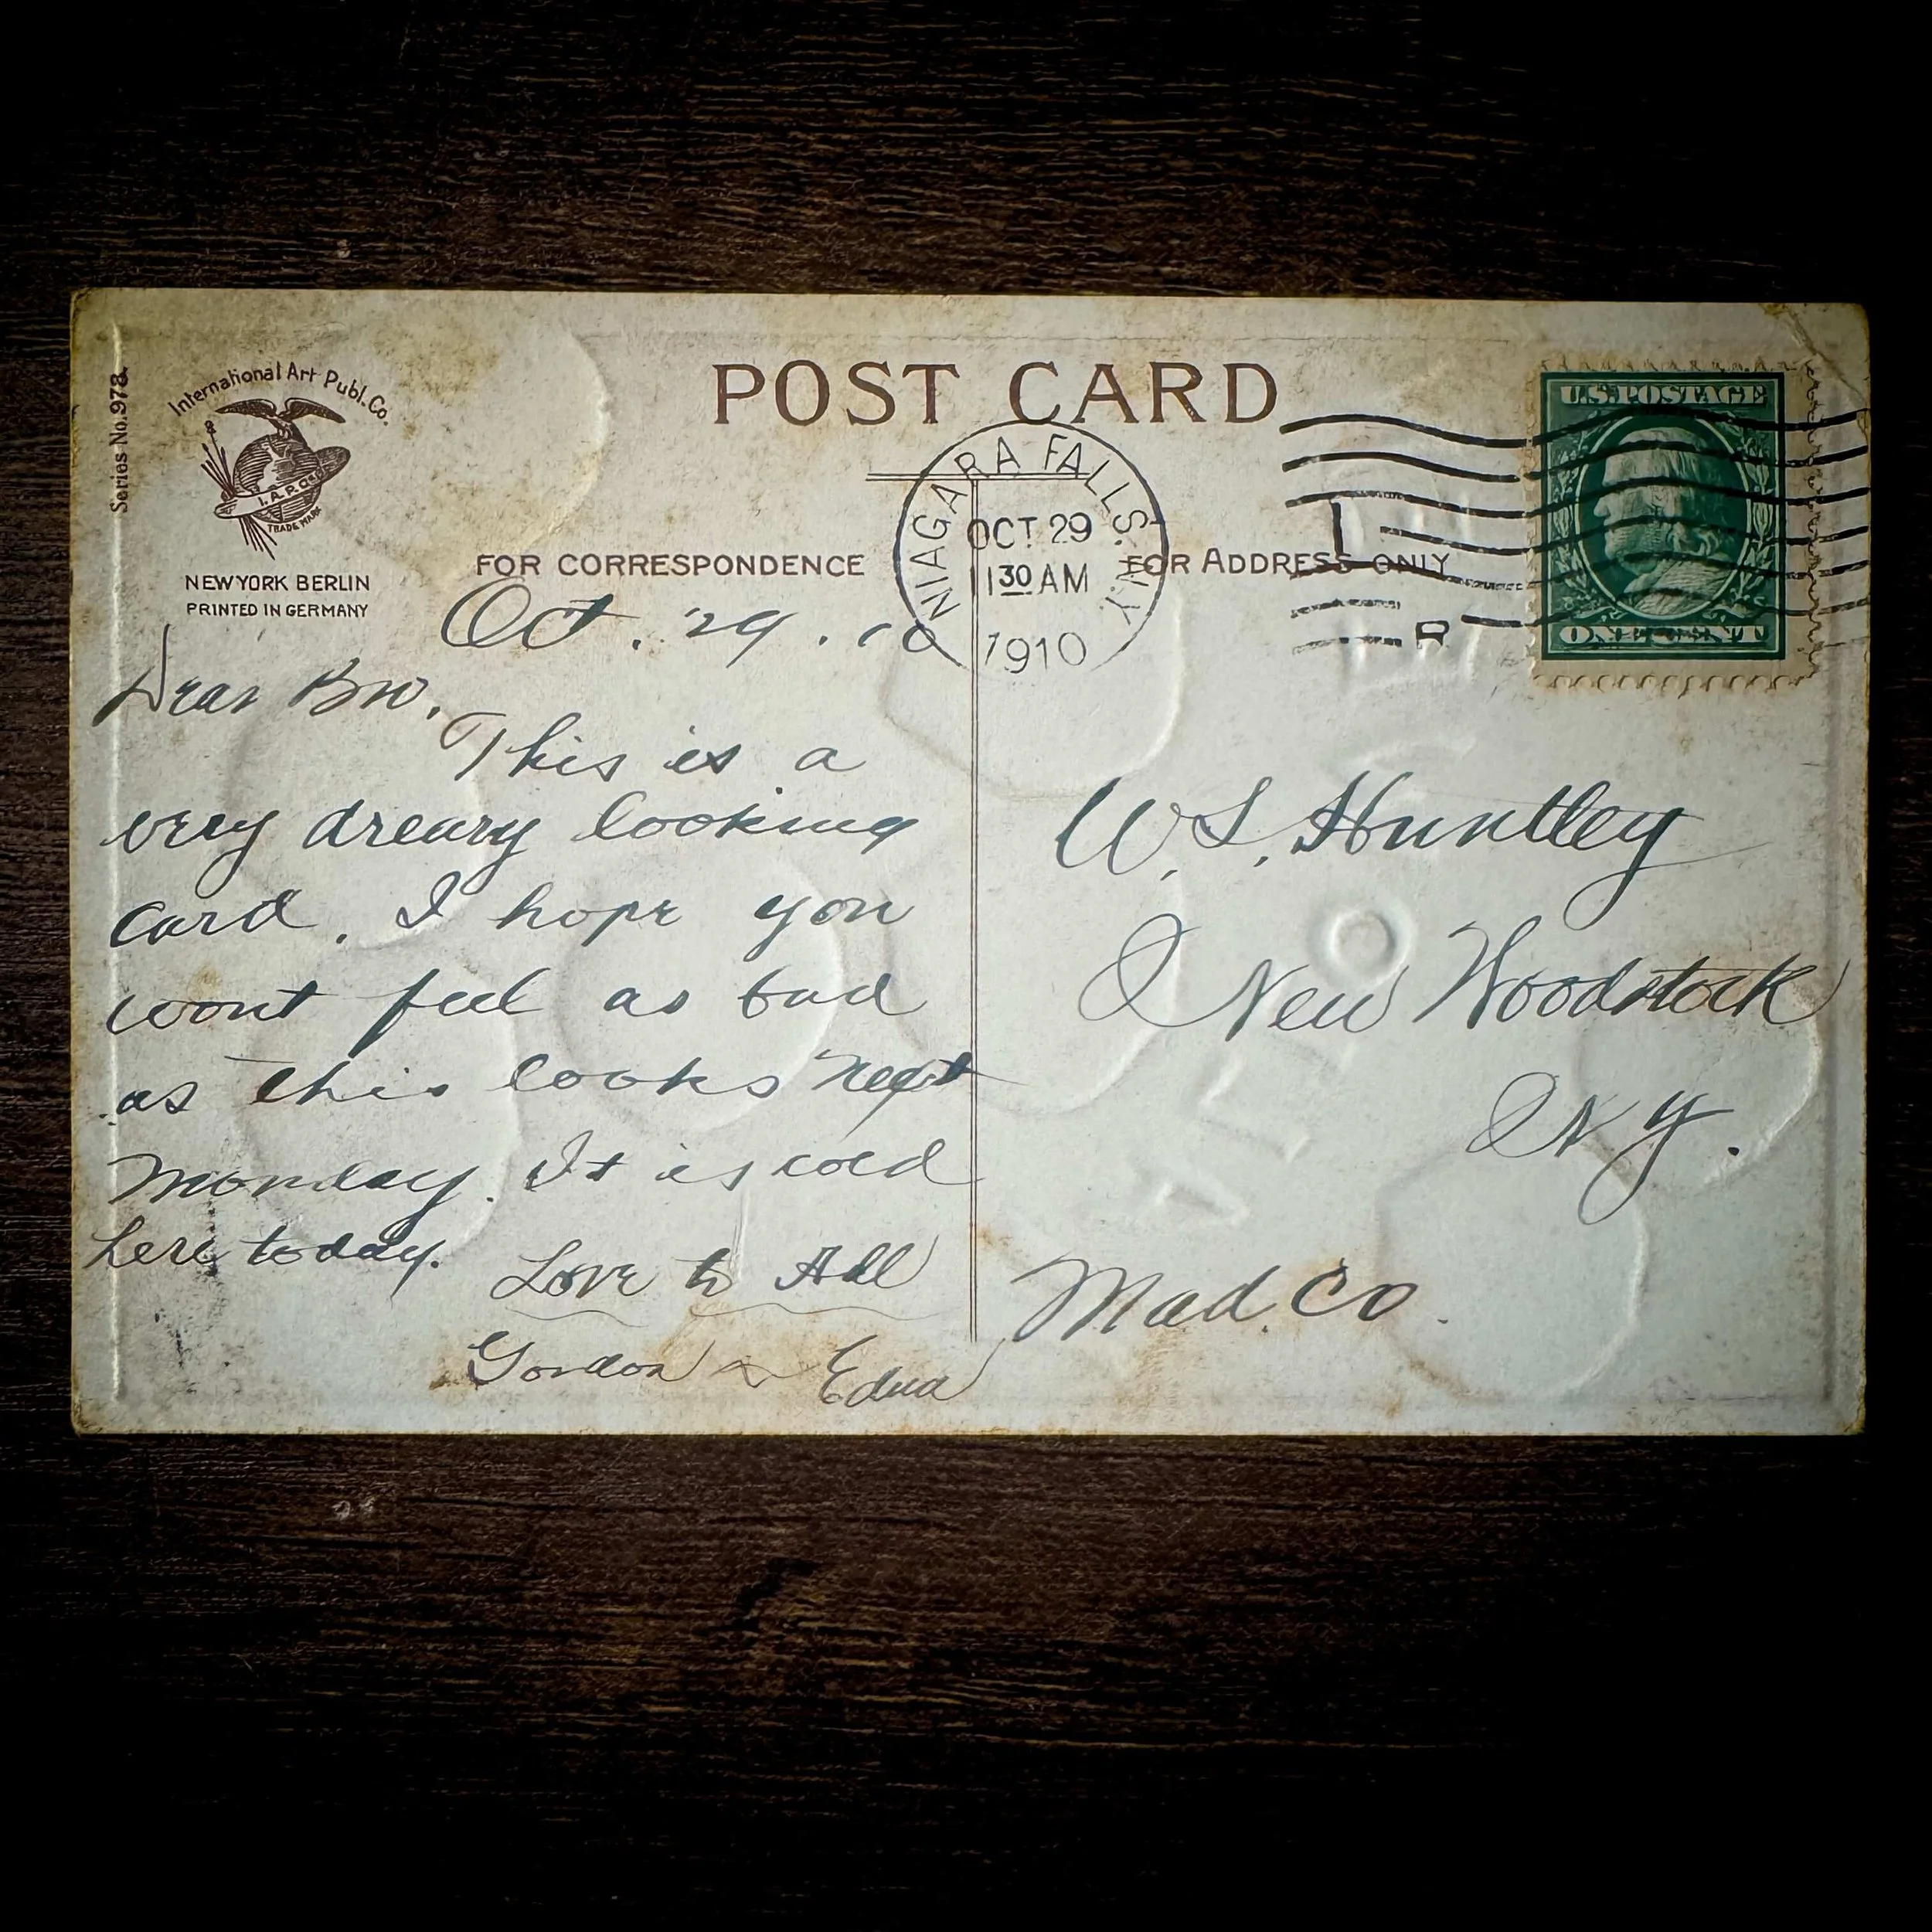 Series No. 978.
International Art Publ. Co.
I. A. P. Co.
TRADE MARK
NEW YORK BERLIN
PRINTED IN GERMANY
POST CARD
FOR CORRESPONDENCE
FOR ADDRESS ONLY
NIAGARA FALLS. N.Y.
OCT 29
1130 AM
1910
U.S. POSTAGE
ONE CENT
Oct. 29. 10
Dear Bro.
This is a
very dreary looking
card. I hope you
wont feel as bad
as this looks next
Monday. It is cold
here today.
Love to All
Gordon & Edna
W. S. Huntley
New Woodstock
N.Y.
Mad. Co.